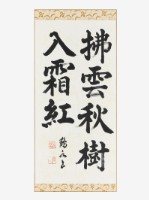 拂雲秋樹
入霜紅